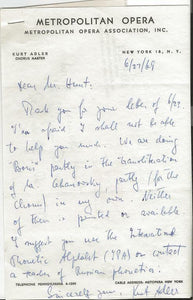 METROPOLITAN OPERA
METROPOLITAN OPERA ASSOCIATION, INC.
KURT ADLER
CHORUS MASTER
NEW YORK 18, N.Y.
6/27/69
Dear Mr. Hunt:
Thank you for your letter of 6/22
I'm afraid I shall not be able
to help you much. We are doing
"Boris" partly in the
of partly (for the
Chorus) in my own. Neither
of them is printed or available
I suggest you use the International
Phonetic Alphabet (IPA) or contact
a reader of Russian phonetics.
Sincerely yours
Kurt Adler
TELEPHONE PENNSYLVANIA
CABLE ADDRESS: METOPERA NEW YORK